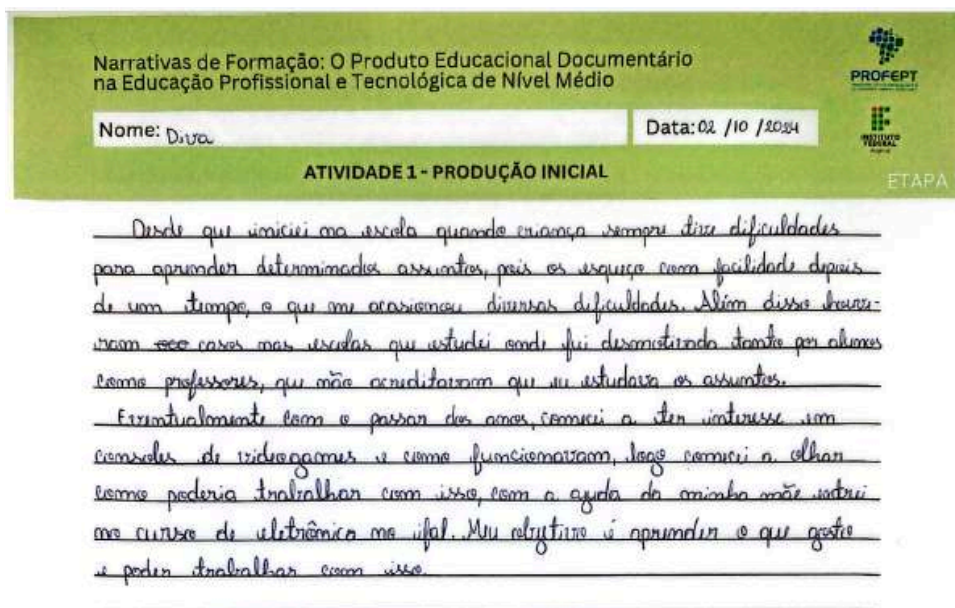 Narrativas de Formação: O Produto Educacional Documentário
na Educação Profissional e Tecnológica de Nível Médio
PROFEPT
Nome: Diva
Data: 02 /10 /2024
INSTITUTO
FEDERAL
ATIVIDADE 1 - PRODUÇÃO INICIAL
ETAPA
Desde que iniciei na escola quando criança sempre tive dificuldades
para aprender determinados assuntos, pois os esqueço com facilidade depois
de um tempo, o que me ocasionou diversas dificuldades. Além disso houve-
ram casos nas escolas que estudei onde fui desmotivada tanto por alunos
como professores, que não acreditavam que eu estudava os assuntos.
Eventualmente com o passar dos anos, comecei a ter interesse em
consoles de videogames e como funcionavam, logo comecei a olhar
como poderia trabalhar com isso, com a ajuda da minha mãe entrei
no curso de eletrônica no ifal. Meu objetivo é aprender o que gosto
e poder trabalhar com isso.